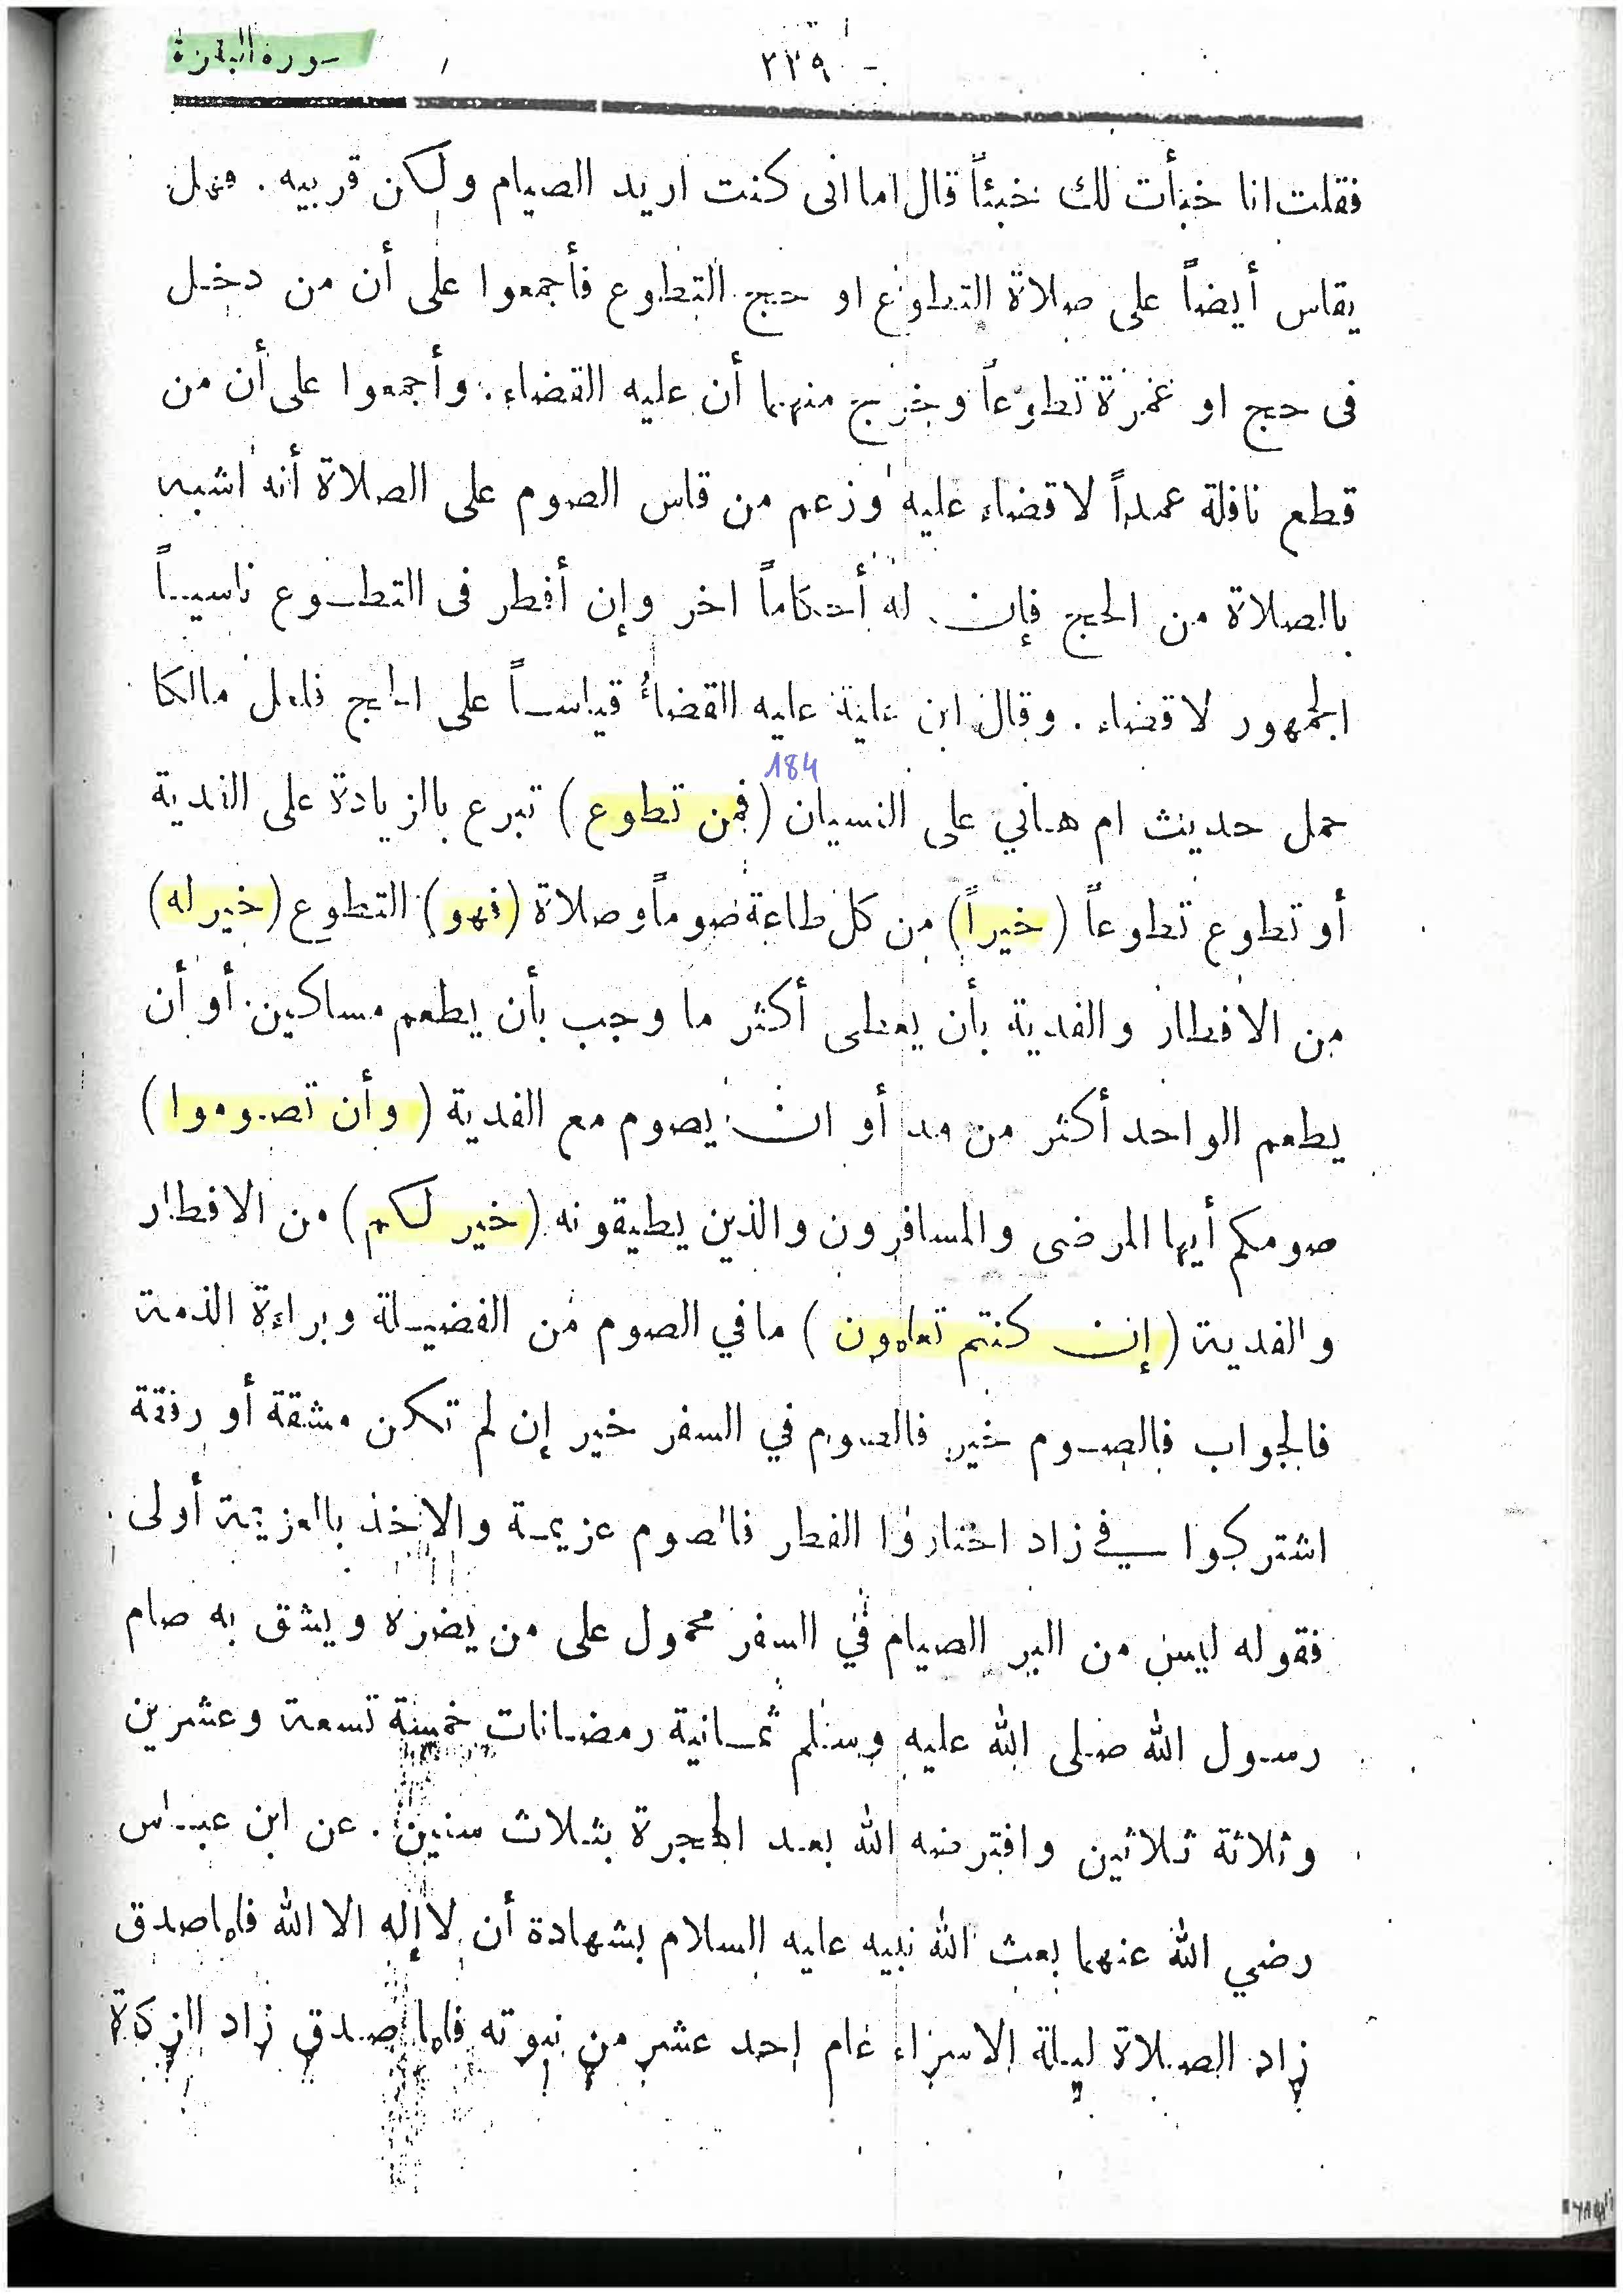 سورة البقرة
- ٢٣٩
فقلت انا خبأت لك خبئاً قال اما انى كنت اريد الصيام ولكن قربيه . وهل
يقاس أيضاً على صلاة التطوع او حج التطوع فأجمعوا على أن من دخل
فى حج او عمرة تطوعاً وخرج منهما أن عليه القضاء . وأجمعوا على أن من
قطع نافلة عمداً لا قضاء عليه وزعم من قاس الصوم على الصلاة أنه اشبه
بالصلاة من الحج فإن له أحكاماً اخر وإن أفطر فى التطوع ناسياً
الجمهور لا قضاء . وقال ابن علية عليه القضاء قياساً على الحج فلعل مالكا
184
حمل حديث ام هاني على النسيان (فمن تطوع) تبرع بالزيادة على الفدية
أو تطوع تطوعاً (خيراً) من كل طاعة صوماً وصلاة (فهو) التطوع (خير له)
من الافطار والفدية بأن يعطى أكثر ما وجب بأن يطعم مساكين أو أن
يطعم الواحد أكثر من مد أو ان يصوم مع الفدية (وأن تصوموا)
صومكم أيها المرضى والمسافرون والذين يطيقونه (خير لكم) من الافطار
والفدية (إن كنتم تعلمون) ما في الصوم من الفضيلة وبراءة الذمة
فالجواب فالصوم خير فالصوم في السفر خير إن لم تكن مشقة أو رفقة
اشتركوا في زاد اختاروا الفطر فالصوم عزيمة والاخذ بالعزيمة أولى
فقوله ليس من البر الصيام في السفر محمول على من يضره ويشق به صام
رسول الله صلى الله عليه وسلم ثمانية رمضانات خمسة تسعة وعشرين
وثلاثة ثلاثين وافترضه الله بعد الهجرة بثلاث سنين . عن ابن عباس
رضي الله عنهما بعث الله نبيه عليه السلام بشهادة أن لا إله الا الله فلما صدق
زاد الصلاة ليلة الاسراء عام احد عشر من نبوته فلما صدق زاد الزكاة